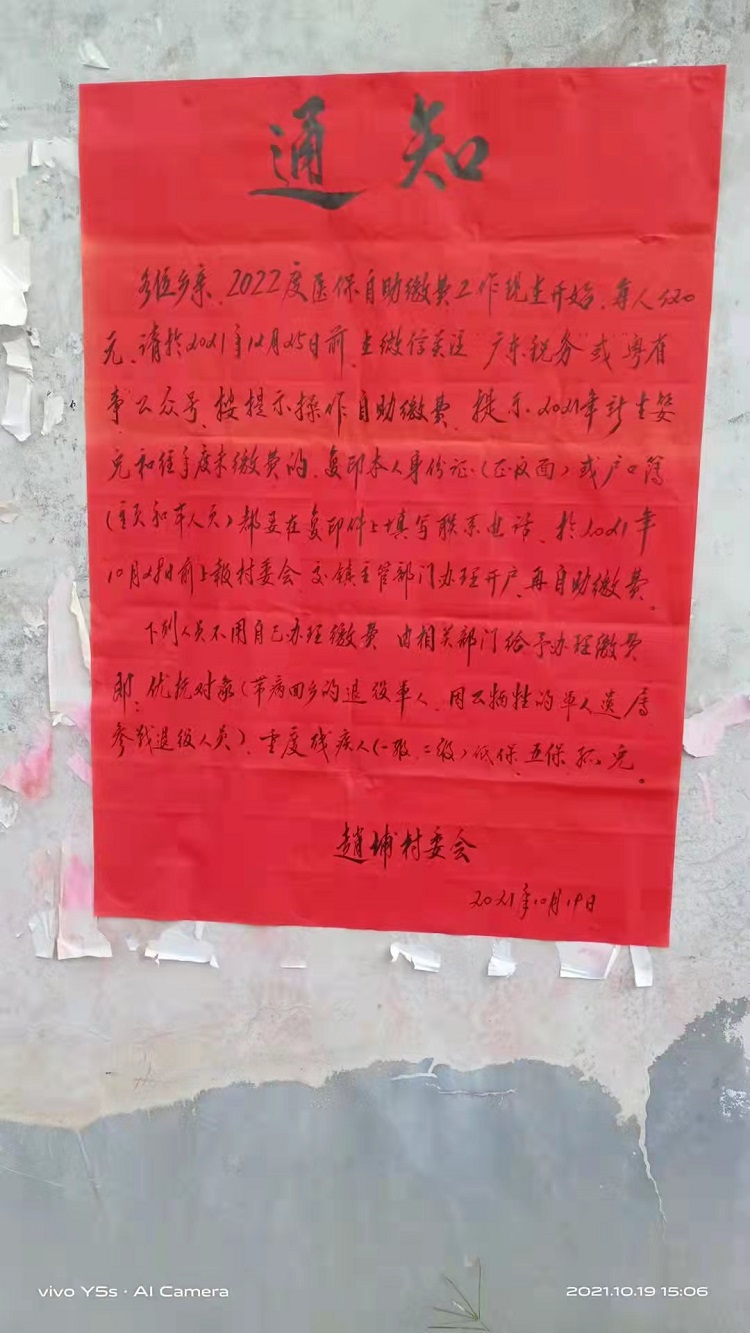 通知
各位乡亲、2022度医保自助缴费工作现在开始、每人320
元、请於2021年12月25日前、在微信关注"广东税务"或"粤省
事"公众号、按提示操作自助缴费、提示、2021年新生婴
儿和往年度未缴费的、复印本人身份证(正反面)或户口簿
(首页和本人页)都要在复印件上填写联系电话、於2021年
10月28日前上报村委会、交镇主管部门办理开户、再自助缴费。
下列人员不用自己办理缴费、由相关部门给予办理缴费
即:优抚对象(带病回乡的退役军人、因公牺牲的军人遗属
参战退役人员)、重度残疾人(一级、二级)低保、五保、孤儿。
趙埔村委会
2021年10月19日
vivo Y5s · AI Camera
2021.10.19 15:06